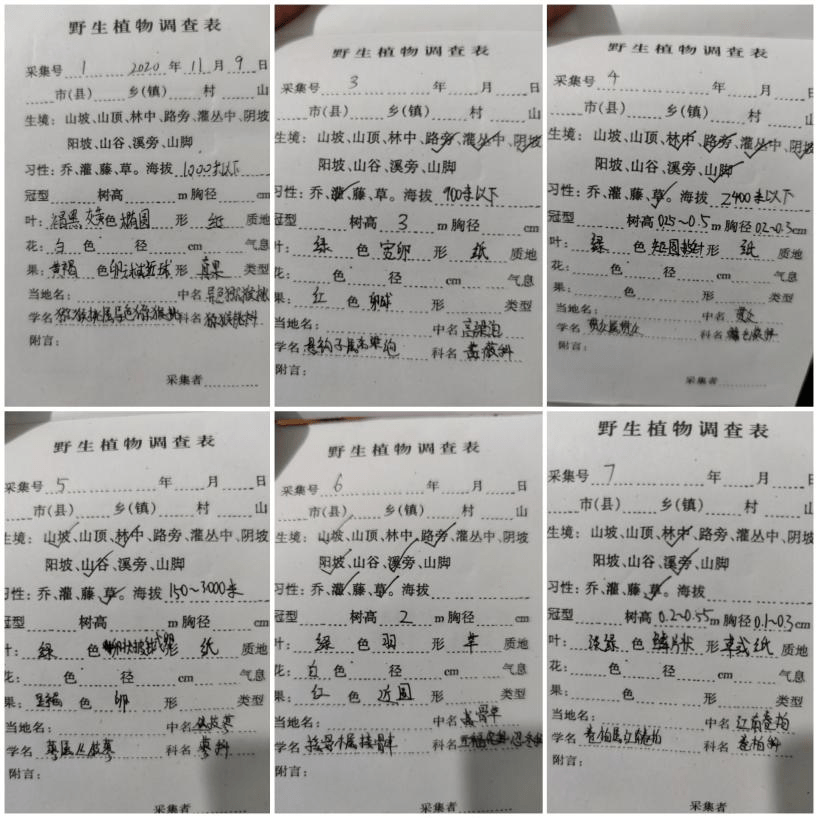 野生植物调查表
采集号 1 2020 年 11 月 9 日
市(县) 乡(镇) 村 山
生境: 山坡、山顶、林中、路旁、灌丛中、阴坡
阳坡、山谷、溪旁、山脚
习性: 乔、灌、藤、草。海拔 1000米以下
冠型 树高 m 胸径 cm
叶: 色 椭圆 形 纸 质地
花: 白 色 径 cm 气息
果: 黄褐 色 形 真果 类型
当地名: 中名
学名 科名 猕猴桃科
附言:
采集者
野生植物调查表
采集号 3 年 月 日
市(县) 乡(镇) 村 山
生境: 山坡、山顶、林中、路旁、灌丛中、阴坡
阳坡、山谷、溪旁、山脚
习性: 乔、灌、藤、草。海拔 900米以下
冠型 树高 3 m 胸径 cm
叶: 绿 色 宽卵 形 纸 质地
花: 色 径 cm 气息
果: 红 色 形 类型
当地名: 中名 高粱泡
学名 悬钩子属高粱泡 科名 蔷薇科
附言:
野生植物调查表
采集号 4 年 月 日
市(县) 乡(镇) 村 山
生境: 山坡、山顶、林中、路旁、灌丛中、阴坡
阳坡、山谷、溪旁、山脚
习性: 乔、灌、藤、草。海拔 2400米以下
冠型 树高 0.25~0.5 m 胸径 0.2~0.3 cm
叶: 绿 色 形 纸 质地
花: 色 径 cm 气息
果: 色 形 类型
当地名: 中名
学名 科名
附言:
采集者
野生植物调查表
采集号 5 年 月 日
市(县) 乡(镇) 村 山
生境: 山坡、山顶、林中、路旁、灌丛中、阴坡
阳坡、山谷、溪旁、山脚
习性: 乔、灌、藤、草。海拔 150~3000米
冠型 树高 m 胸径 cm
叶: 绿 色 形 纸 质地
花: 色 径 cm 气息
果: 色 卵 形 类型
当地名: 中名 丛枝蓼
学名 蓼属丛枝蓼 科名 蓼科
附言:
采集者
野生植物调查表
采集号 6 年 月 日
市(县) 乡(镇) 村 山
生境: 山坡、山顶、林中、路旁、灌丛中、阴坡
阳坡、山谷、溪旁、山脚
习性: 乔、灌、藤、草。海拔
冠型 树高 2 m 胸径 cm
叶: 绿 色 羽 形 草 质地
花: 白 色 径 cm 气息
果: 红 色 近圆 形 类型
当地名: 中名 接骨草
学名 接骨木属接骨草 科名
附言:
野生植物调查表
采集号 7 年 月 日
市(县) 乡(镇) 村 山
生境: 山坡、山顶、林中、路旁、灌丛中、阴坡
阳坡、山谷、溪旁、山脚
习性: 乔、灌、藤、草。海拔
冠型 树高 0.2~0.55 m 胸径 0.1~0.3 cm
叶: 淡绿 色 鳞片状 形 草或纸 质地
花: 色 径 cm 气息
果: 色 形 类型
当地名: 中名 江南卷柏
学名 卷柏属江南卷柏 科名 卷柏科
附言:
采集者